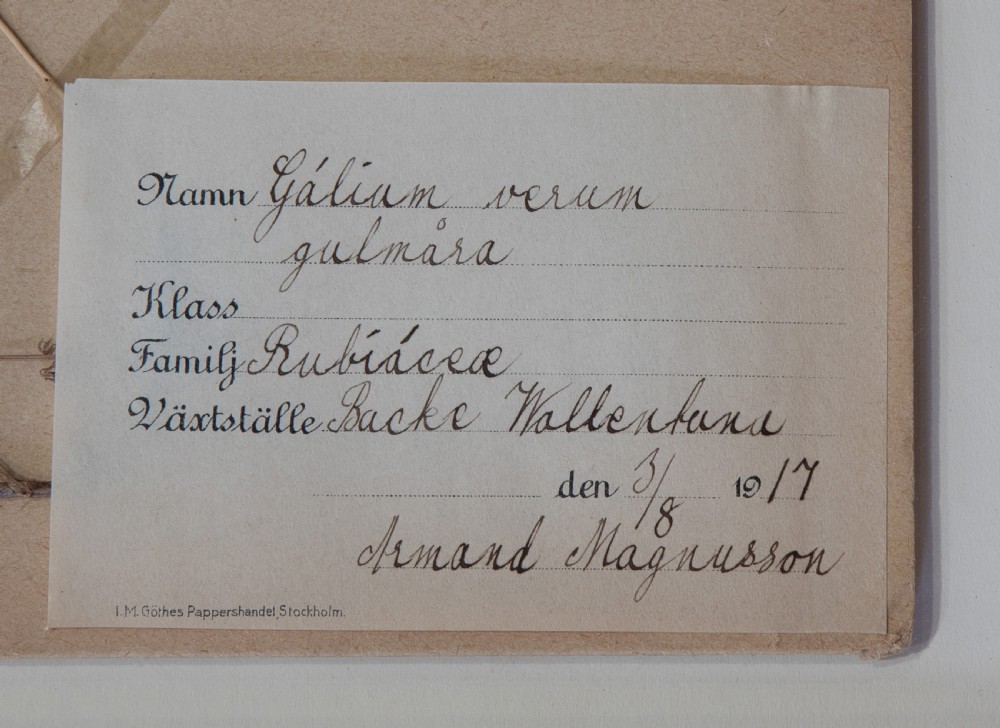 Namn Gálium verum
gulmåra
Klass
Familj Rubiáceæ
Växtställe Backe Wallentuna
den 3/8 1917
Armand Magnusson
I. M. Göthes Pappershandel, Stockholm.